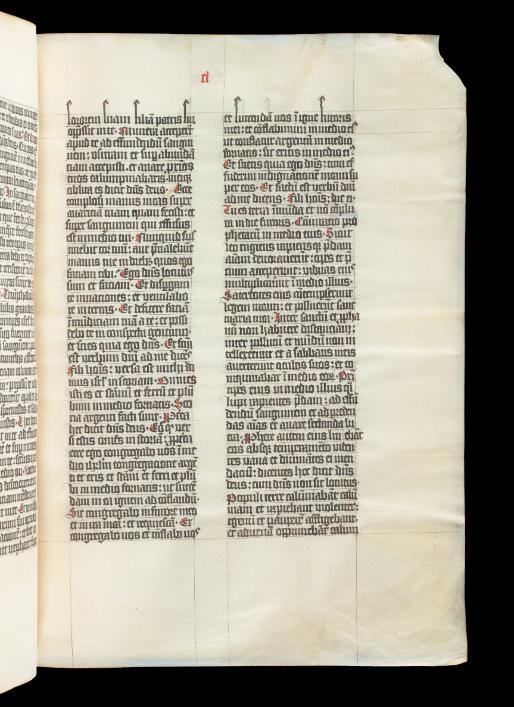 cl
sororem suam filiā patris sui
oppressit in te. Munera acceperūt
apud te ad effundendū sangui
nem: usuram et suꝑ abundā
tiam accepisti. et auare ꝓximos
tuos calumpniabaris: meiqꝫ
oblita es dicit dn̄s deus. Ecce
complosi manus meas super
auaritiā tuam quam fecisti: et
super sanguinem qui effusus
est in medio tui. Nunquid sus
tinebit cor tuū: aut p̄ualebunt
manus tue in diebꝫ quos ego
faciam tibi. Ego dn̄s locutus
sum et faciam. Et dispergam
te in nationes: et ventilabo
te in terras. Et deficere faciā
īmūditiam tuā a te: et possi
debo te in conspectu gentiū:
et scies quia ego dn̄s. Et factū
est verbum dn̄i ad me dicēs
Fili hoīs: versa est michi do
mus isrl' in scoriam. Omnes
isti es et stānū et ferrū et plū
bum in medio fornacis. Sco
ria argenti facti sunt. Propterea
hec dicit dn̄s deus. Eo ꝙ ver
si estis omēs in scoriā: propterea
ecce ego congregabo uos ī me
dio iherlm̄ congregatione arge
ti et eris et stāni et ferri et plū
bi in medio fornacis: ut succē
dam in ea ignem ad cōflandū.
Sic congregabo in furore meo
et in ira mea: et requiescā. Et
congregabo uos et cōflabo uos
et succendā uos ī igne furoris
mei: et cōflabimini in medio eiꝰ
ut conflatur argentū in medio
fornacis: sic eritis in medio eiꝰ.
Et scietis quia ego dn̄s: cum ef
fuderim indignationē meam su
per uos. Et factū est verbū dn̄i
ad me dicens. Fili hoīs: dic ei.
Tu es terra inmūda et nō cōpluta
in die furoris. Coniuratio pro
phetarū in medio eius. Sicut
leo rugiens rapiensqꝫ p̄dam
aīam deuorauerūt: opes et p̄
cium acceperunt: viduas eius
multiplicarūt ī medio illius.
Sacerdotes eius cōtempserunt
legem meam: et polluerūt sanc
tuaria mea. Inter sanctū et ꝓpha
nū non habuere distanciam:
inter pollutū et mūdū non in
tellexerunt et a sabbatis meis
auerterunt oculos suos: et co
inquinabar ī medio eoꝝ. Prin
cipes eius in medio illius qͣsi
lupi rapientes p̄dam: ad effū
dendū sanguinem et ad perden
das aīas et auare sectanda lu
cra. Prophete autem eius liniebāt
eos absqꝫ temperamēto viden
tes vana et diuinātes ei men
daciū: dicentes hec dicit dn̄s
deus: cum dn̄s non sit locutus.
Populi terre calūniabāt calū
niam et rapiebant violenter:
egenū et pauperē affligebant:
et aduenā opprimebāt calum